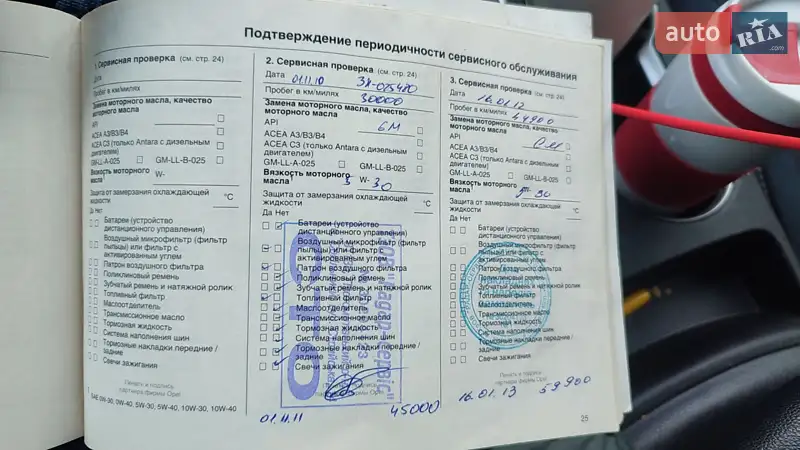 auto RIA .com
Подтверждение периодичности сервисного обслуживания
1. Сервисная проверка (см. стр. 24)
Дата
Пробег в км/милях
Замена моторного масла, качество моторного масла
API
ACEA A3/B3/B4
ACEA C3 (только Antara с дизельным двигателем)
GM-LL-A-025 GM-LL-B-025
Вязкость моторного масла¹ W-
Защита от замерзания охлаждающей жидкости °C
Да Нет
Батареи (устройство дистанционного управления)
Воздушный микрофильтр (фильтр пыльцы) или фильтр с активированным углем
Патрон воздушного фильтра
Поликлиновый ремень
Зубчатый ремень и натяжной ролик
Топливный фильтр
Маслоотделитель
Трансмиссионное масло
Тормозная жидкость
Система наполнения шин
Тормозные накладки передние / задние
Свечи зажигания
Печать и подпись
партнера фирмы Opel
¹ SAE 0W-30, 0W-40, 5W-30, 5W-40, 10W-30, 10W-40
2. Сервисная проверка (см. стр. 24)
Дата 01.11.10
Пробег в км/милях 30000
Замена моторного масла, качество моторного масла
API GM
ACEA A3/B3/B4
ACEA C3 (только Antara с дизельным двигателем)
GM-LL-A-025 GM-LL-B-025
Вязкость моторного масла¹ 5 W- 30
Защита от замерзания охлаждающей жидкости °C
Да Нет
Батареи (устройство дистанционного управления)
Воздушный микрофильтр (фильтр пыльцы) или фильтр с активированным углем
Патрон воздушного фильтра
Поликлиновый ремень
Зубчатый ремень и натяжной ролик
Топливный фильтр
Маслоотделитель
Трансмиссионное масло
Тормозная жидкость
Система наполнения шин
Тормозные накладки передние / задние
Свечи зажигания
СТО
партнера фирмы Opel
01.11.11 45000
3. Сервисная проверка (см. стр. 24)
Дата 16.01.12
Пробег в км/милях 44900
Замена моторного масла, качество моторного масла
API
ACEA A3/B3/B4
ACEA C3 (только Antara с дизельным двигателем)
GM-LL-A-025 GM-LL-B-025
Вязкость моторного масла¹ 30
Защита от замерзания охлаждающей жидкости °C
Да Нет
Батареи (устройство дистанционного управления)
Воздушный микрофильтр (фильтр пыльцы) или фильтр с активированным углем
Патрон воздушного фильтра
Поликлиновый ремень
Зубчатый ремень и натяжной ролик
Топливный фильтр
Маслоотделитель
Трансмиссионное масло
Тормозная жидкость
Система наполнения шин
Тормозные накладки передние / задние
Свечи зажигания
Печать и подпись
партнера фирмы Opel
16.01.13 59900
25